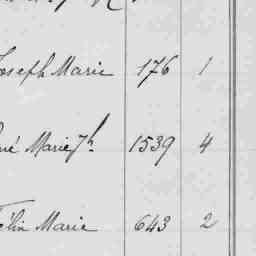 Joseph Marie 176 1
René Marie Jh 1539 4
Félix Marie 643 2